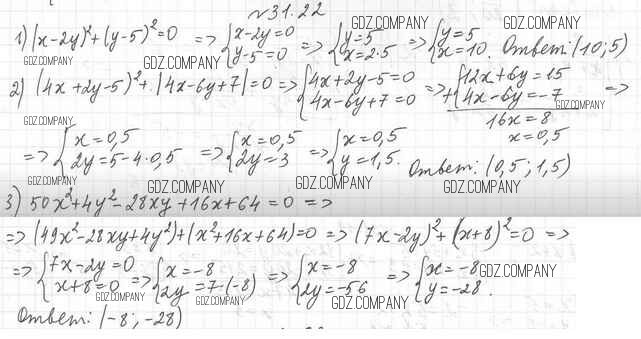 №31.22
1) (x-2y)²+(y-5)²=0 => {x-2y=0 y-5=0 => {y=5 x=2·5 => {y=5 x=10. Ответ: (10; 5)
GDZ.COMPANY GDZ.COMPANY GDZ.COMPANY GDZ.COMPANY
2) (4x+2y-5)²+|4x-6y+7|=0 => {4x+2y-5=0 4x-6y+7=0 => +{12x+6y=15 4x-6y=-7 =>
16x=8
x=0,5
GDZ.COMPANY GDZ.COMPANY
=> {x=0,5 2y=5-4·0,5 => {x=0,5 2y=3 => {x=0,5 y=1,5. Ответ: (0,5; 1,5)
GDZ.COMPANY GDZ.COMPANY GDZ.COMPANY GDZ.COMPANY
3) 50x²+4y²-28xy+16x+64=0 =>
=> (49x²-28xy+4y²)+(x²+16x+64)=0 => (7x-2y)²+(x+8)²=0 =>
=> {7x-2y=0 x+8=0 => {x=-8 2y=7·(-8) => {x=-8 2y=-56 => {x=-8 y=-28.
GDZ.COMPANY GDZ.COMPANY GDZ.COMPANY GDZ.COMPANY
Ответ: (-8; -28)